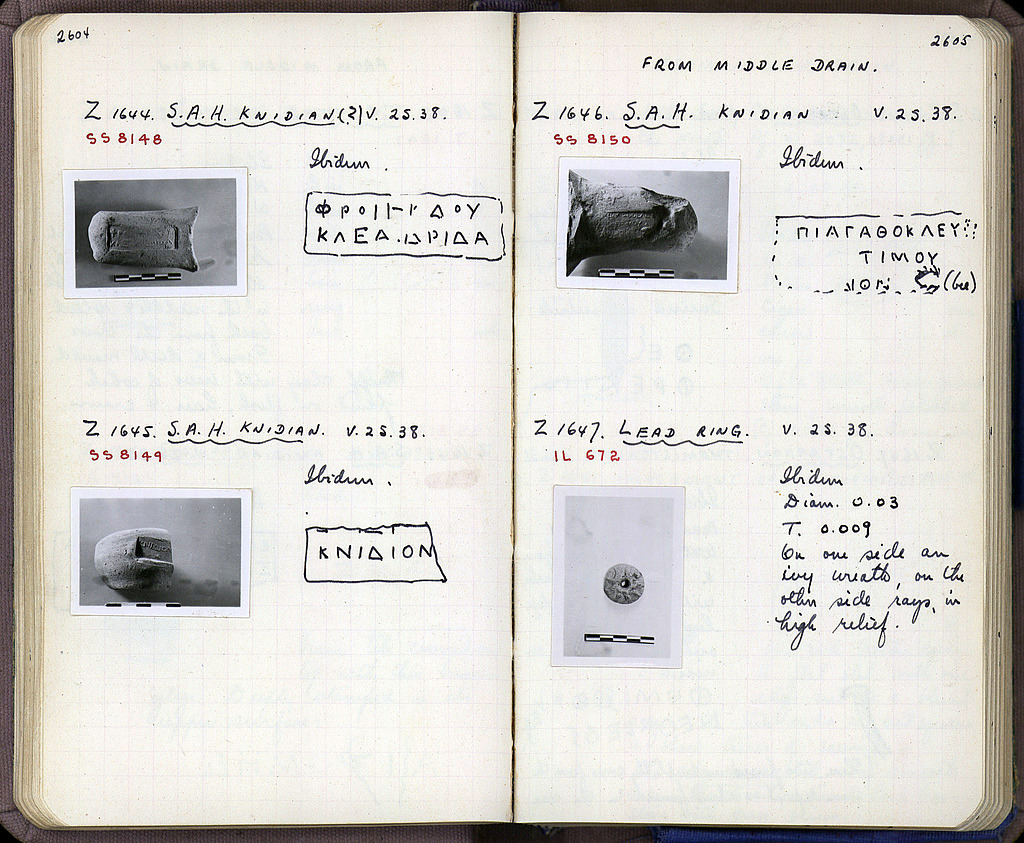 2604
Z 1644. S.A.H. KNIDIAN(?) V. 25.38.
SS 8148
Ibidem.
ΚΛΕΑ.ΙΔΡΙΔΑ
Z 1645. S.A.H. KNIDIAN. V. 25.38.
SS 8149
Ibidem.
ΚΝΙΔΙΟΝ
2605
FROM MIDDLE DRAIN.
Z 1646. S.A.H. KNIDIAN V. 25.38.
SS 8150
Ibidem.
ΠΙΑΓΑΘΟΚΛΕΥ
ΤΙΜΟΥ
(bee)
Z 1647. LEAD RING. V. 25.38.
IL 672
Ibidem
Diam. 0.03
T. 0.009
On one side an
ivy wreath, on the
other side rays, in
high relief.